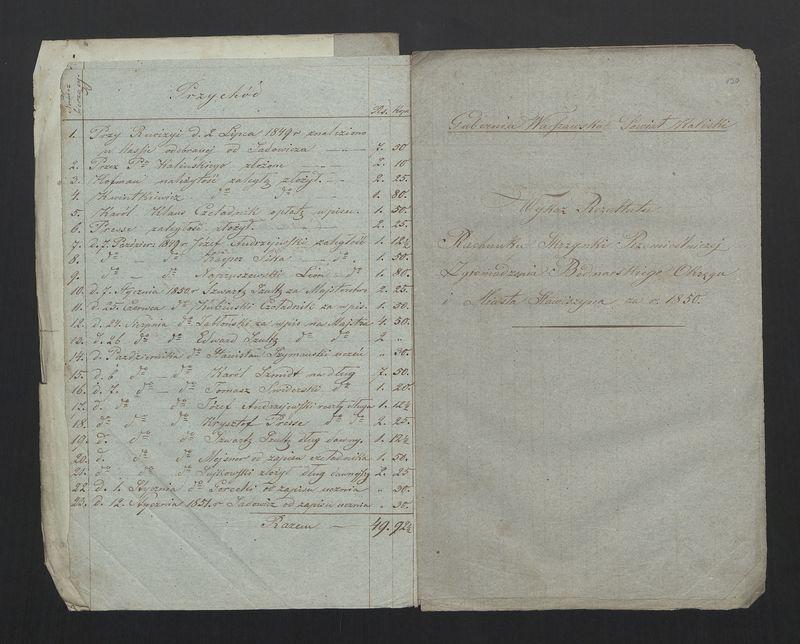 Przychód
Rs. Kop.
1. Przy Rewizyi d. 2 Lipca 1849 r znaleziono
w kassie odebranej od Sadowicza — 7. 50
2. Przez Pa Kalińskiego złożono 2. 10
3. Hofman należytość zaległą złożył. — 2. 25.
4. Kwiatkiewicz do do — 1. 80.
5. Karól Klaus Czeladnik opłatę wpisu. 1. 50.
6. Presse zaległość złożył. — 2. 25.
7. d. 7. Paździer. 1849 r Józef Andrzejewski zaległość 1. 12½
8. do — do Kacper — 1. 50.
9. do — do Naruszewski Lion do 1. 80
10. d. 7. Stycznia 1850 r Szwartz Szultz za Majsterstwo 2. 25
11. d. 25. Czerwca do Kubiński Czeladnik za wpis. 1. 50
12. d. 24 Sierpnia do Jabłoński za wpis na Majstra 4. 50.
13. d. 26 do do Edward Szultz do do 2 "
14. d. Października do Stanisław Szymański uczeń " 30.
15. d. 6 do — do Karól Szmidt na dług 7. 50
16. d. 7. do — do Tomasz Świderski do 1. 20.
17. d. do do Józef Andrzejewski resztę długu 1. 12½
18. do do do Krysztof Presse do do 2. 25.
19. d. do do Szwartz Szultz dług dawny. 1. 12½
20. d. do do od zapisu czeladnika 1. 50.
21. do do do złożył dług dawniejszy 2. 25
22. d. 1. Stycznia do Gorecki od zapisu ucznia " 30.
23. d. 12. Stycznia 1851. r Sadowicz od zapisu ucznia " 30.
Razem — 49. 92½
130
Gubernia Warszawska Powiat Kaliski
Wykaz Rezultatu
Rachunku Skrzynki Rzemieślniczej
Zgromadzenia Bednarskiego Okręgu
i Miasta Stawiszyna za r. 1850.